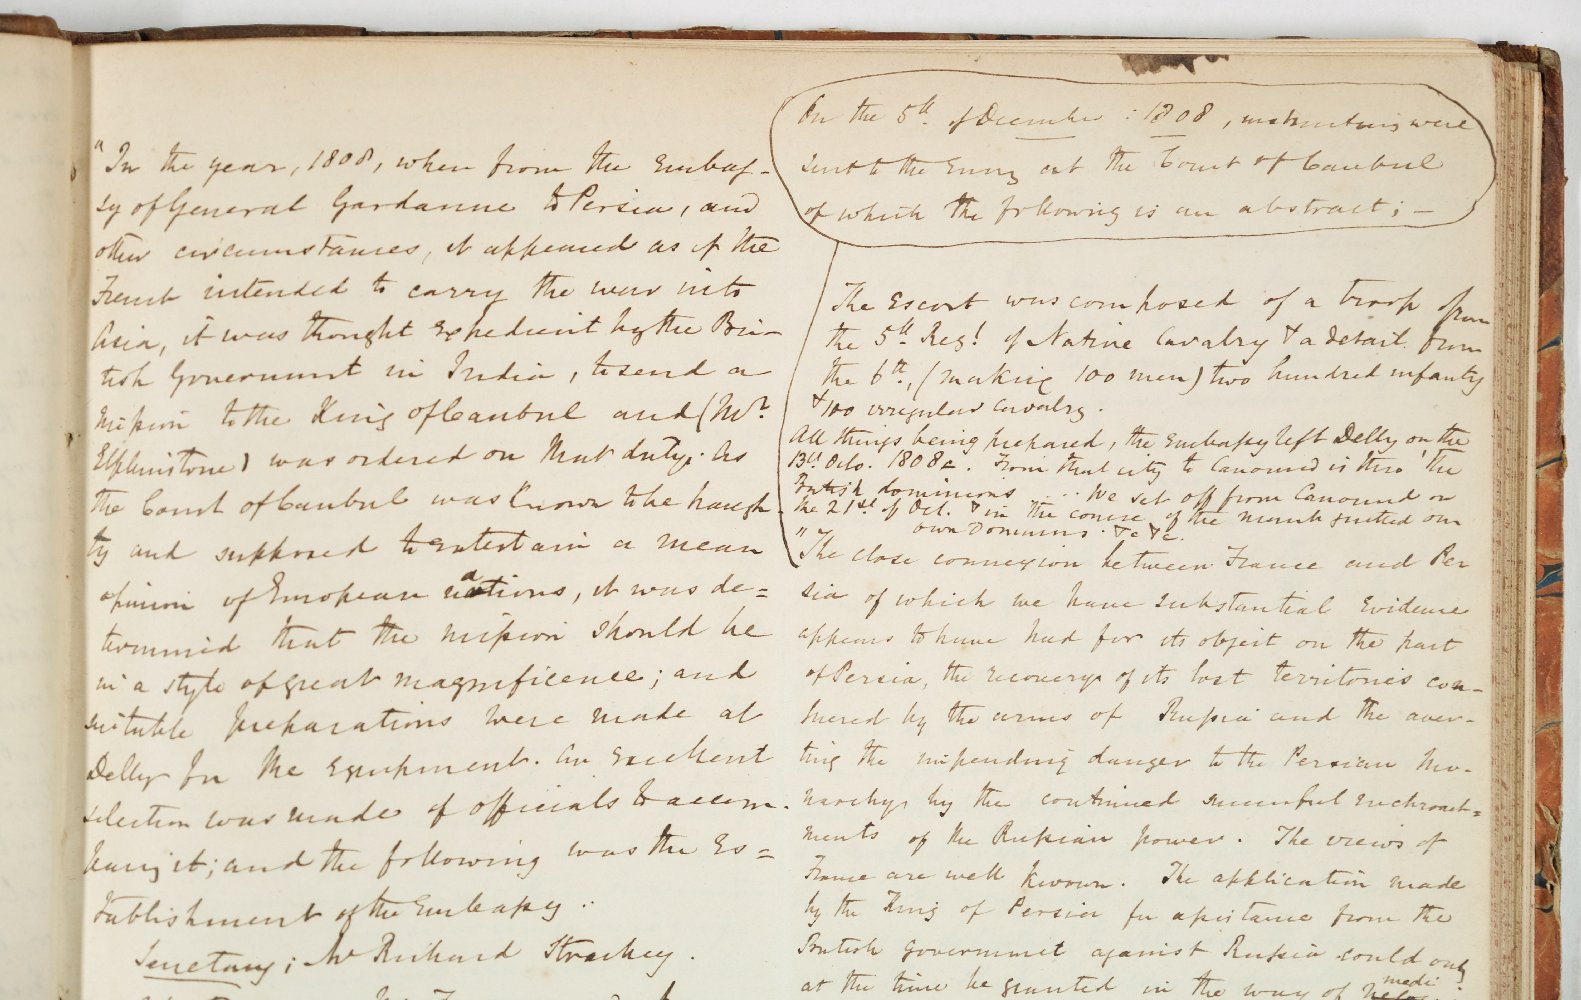 "In the year, 1808, when from the Embas-
sy of General Gardanne to Persia, and
other circumstances, it appeared as if the
French intended to carry the war into
Asia, it was thought expedient by the Bri-
tish Government in India, to send a
mission to the King of Caubul and (Mr.
Elphinstone) was ordered on that duty. As
the Court of Caubul was known to be haugh-
ty and supposed to entertain a mean
opinion of European nations, it was de=
termined that the mission should be
in a style of great magnificence; and
suitable preparations were made at
Delly for the equipment. An excellent
selection was made of officials to accom-
pany it; and the following was the Es=
tablishment of the Embassy..
Secretary; Mr Richard Strachey.
On the 5th. of December : 1808, instructions were
sent to the Envoy at the Court of Caubul
of which the following is an abstract; -
The Escort was composed of a troop from
the 5th Regt. of Native Cavalry & a detail from
the 6th., (making 100 men) two hundred infantry
& 100 irregular cavalry.
All things being prepared, the Embassy left Delly on the
13th Octo. 1808. From that city to Canound is thro' the
British dominions ... We set off from Canound on
the 21st of Oct. & in the course of the march quitted our
own Dominions. &c &c.
"The close connexion between France and Per
sia of which we have substantial evidence
appears to have had for its object on the part
of Persia, the recovery of its lost territories con-
quered by the arms of Russia and the aver-
ting the impending danger to the Persian Mo-
narchy, by the continued successful encroach=
ments of the Russian power. The views of
France are well known. The application made
by the King of Persia for assistance from the
British government against Russia could only
at the time be granted in the way of medi